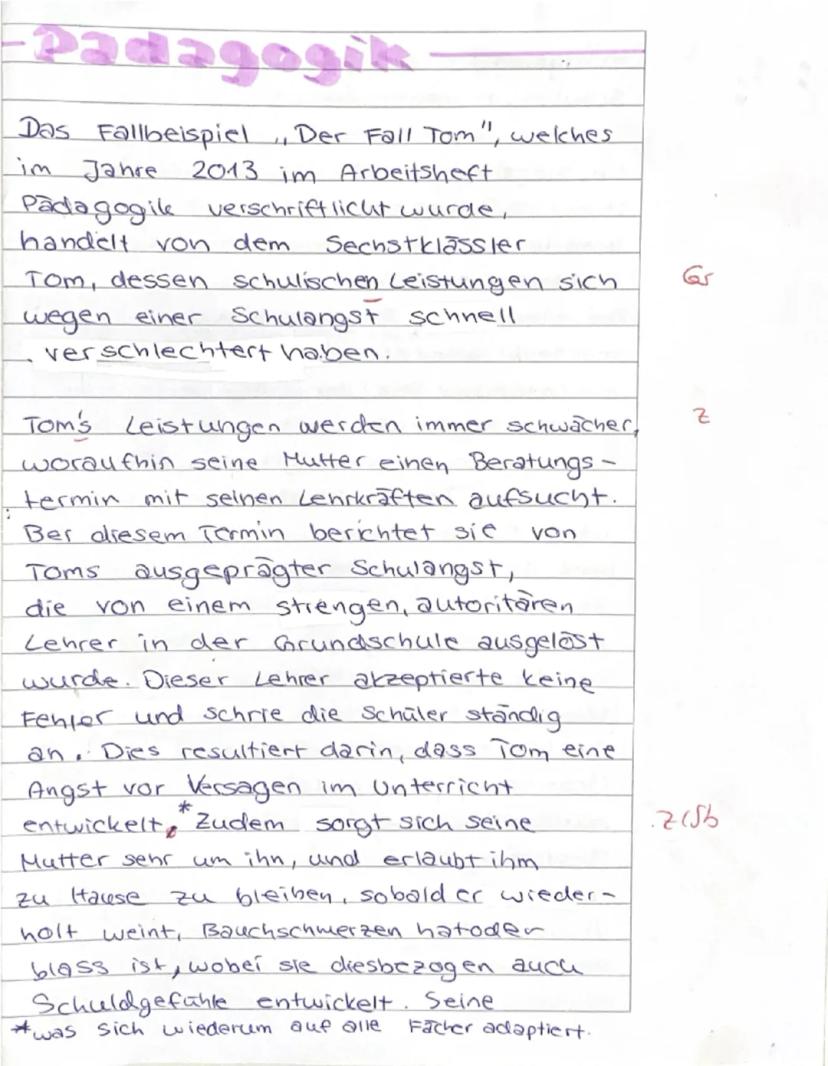 Pädagogik
Das Fallbeispiel „Der Fall Tom", welches
im Jahre 2013 im Arbeitsheft
Pädagogik verschriftlicht wurde,
handelt von dem Sechstklässler
Tom, dessen schulischen Leistungen sich Gr
wegen einer Schulangst schnell
verschlechtert haben.
Tom's Leistungen werden immer schwächer, Z
woraufhin seine Mutter einen Beratungs-
termin mit seinen Lehrkräften aufsucht.
Bei diesem Termin berichtet sie von
Toms ausgeprägter Schulangst,
die von einem strengen, autoritären
Lehrer in der Grundschule ausgelöst
wurde. Dieser Lehrer akzeptierte keine
Fehler und schrie die Schüler ständig
an. Dies resultiert darin, dass Tom eine
Angst vor Versagen im Unterricht
entwickelt,* Zudem sorgt sich seine Z(Sb
Mutter sehr um ihn, und erlaubt ihm
zu Hause zu bleiben, sobald er wieder-
holt weint, Bauchschmerzen hat oder
blass ist, wobei sie diesbezogen auch
Schuldgefühle entwickelt. Seine
*was sich wiederum auf alle Fächer adaptiert.